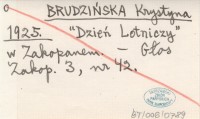 BRUDZIŃSKA Krystyna
1925. "Dzień Lotniczy"
w Zakopanem. – Głos
Zakop. 3, nr 42.